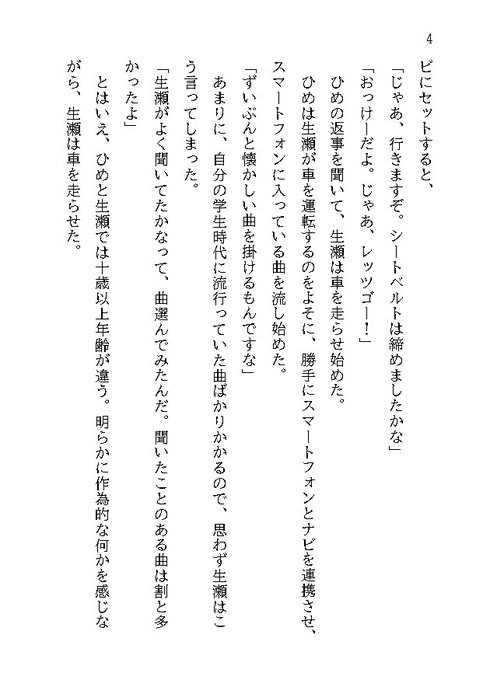 4
ビにセットすると、
「じゃあ、行きますぞ。シートベルトは締めましたかな」
「おっけーだよ。じゃあ、レッツゴー！」
ひめの返事を聞いて、生瀬は車を走らせ始めた。
ひめは生瀬が車を運転するのをよそに、勝手にスマートフォンとナビを連携させ、
スマートフォンに入っている曲を流し始めた。
「ずいぶんと懐かしい曲を掛けるもんですな」
あまりに、自分の学生時代に流行っていた曲ばかりかかるので、思わず生瀬はこ
う言ってしまった。
「生瀬がよく聞いてたかなって、曲選んでみたんだ。聞いたことのある曲は割と多
かったよ」
とはいえ、ひめと生瀬では十歳以上年齢が違う。明らかに作為的な何かを感じな
がら、生瀬は車を走らせた。